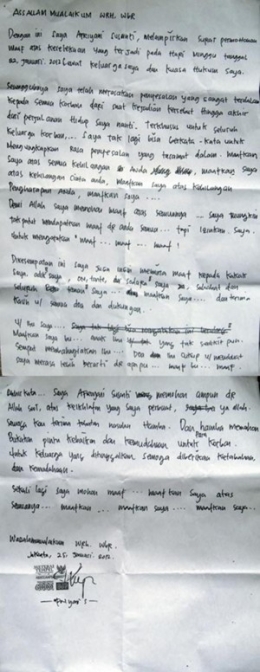 ASSALAM MUALAIKUM WRH. WBR
Dengan ini saya Apriyani Susanti, melampirkan surat permohonan
maaf atas kecelakaan yang terjadi pada Hari Minggu tanggal
22 Januari 2012 buat keluarga saya dan kuasa Hukum saya.
Sesungguhnya saya telah merasakan penyesalan yang sangat terdalam
kepada semua korban dari saat kejadian tersebut hingga akhir
dari perjalanan Hidup saya nanti. Terkhusus untuk seluruh
keluarga korban... Saya tak lagi bisa berkata-kata untuk
mengungkapkan rasa penyesalan yang teramat dalam. maafkan
saya atas semua kehilangan anda, maafkan saya
atas kehilangan cinta anda, maafkan saya atas kehilangan
pengharapan anda, maafkan saya ....
Demi Allah saya memohon maaf atas semuanya ... saya
tak patut mendapatkan maaf dr anda semua .... tapi izinkan saya
untuk mengucapkan "maaf ... maaf ... maaf !
Dikesempatan ini saya juga ingin meminta maaf kepada
saya, adik saya, om, tante, dan sahabat
saya .... maafkan saya .... dan terima
kasih u/ semua doa dan dukungan.
U/ ibu saya ....
Maafkan saya bu ... anak ibu yang tak
Sempat membahagiakan ibu ... Doa ibu cukup u/ membuat
saya merasa lebih berarti dr apapun ... maaf bu ... maaf
saya Apriyani Susanti memohon ampun dr
Allah swt, atas kesalahan yang saya perbuat, ya allah.
Semoga kau terima taubatan nasuha Hamba. Dan hamba memohon
Bukakan pintu keikhlasan dan kemudahan untuk korban.
Untuk keluarga yang ditinggalkan semoga diberikan ketabahan
dan kemudahan.
Sekali lagi saya mohon maaf ... maafkan saya atas
semuanya ... maafkan ... maafkan saya ... maafkan saya ...
Wassalamualaikum WRH. WBR.
Jakarta, 25 Januari 2012.
- Apriyani S -